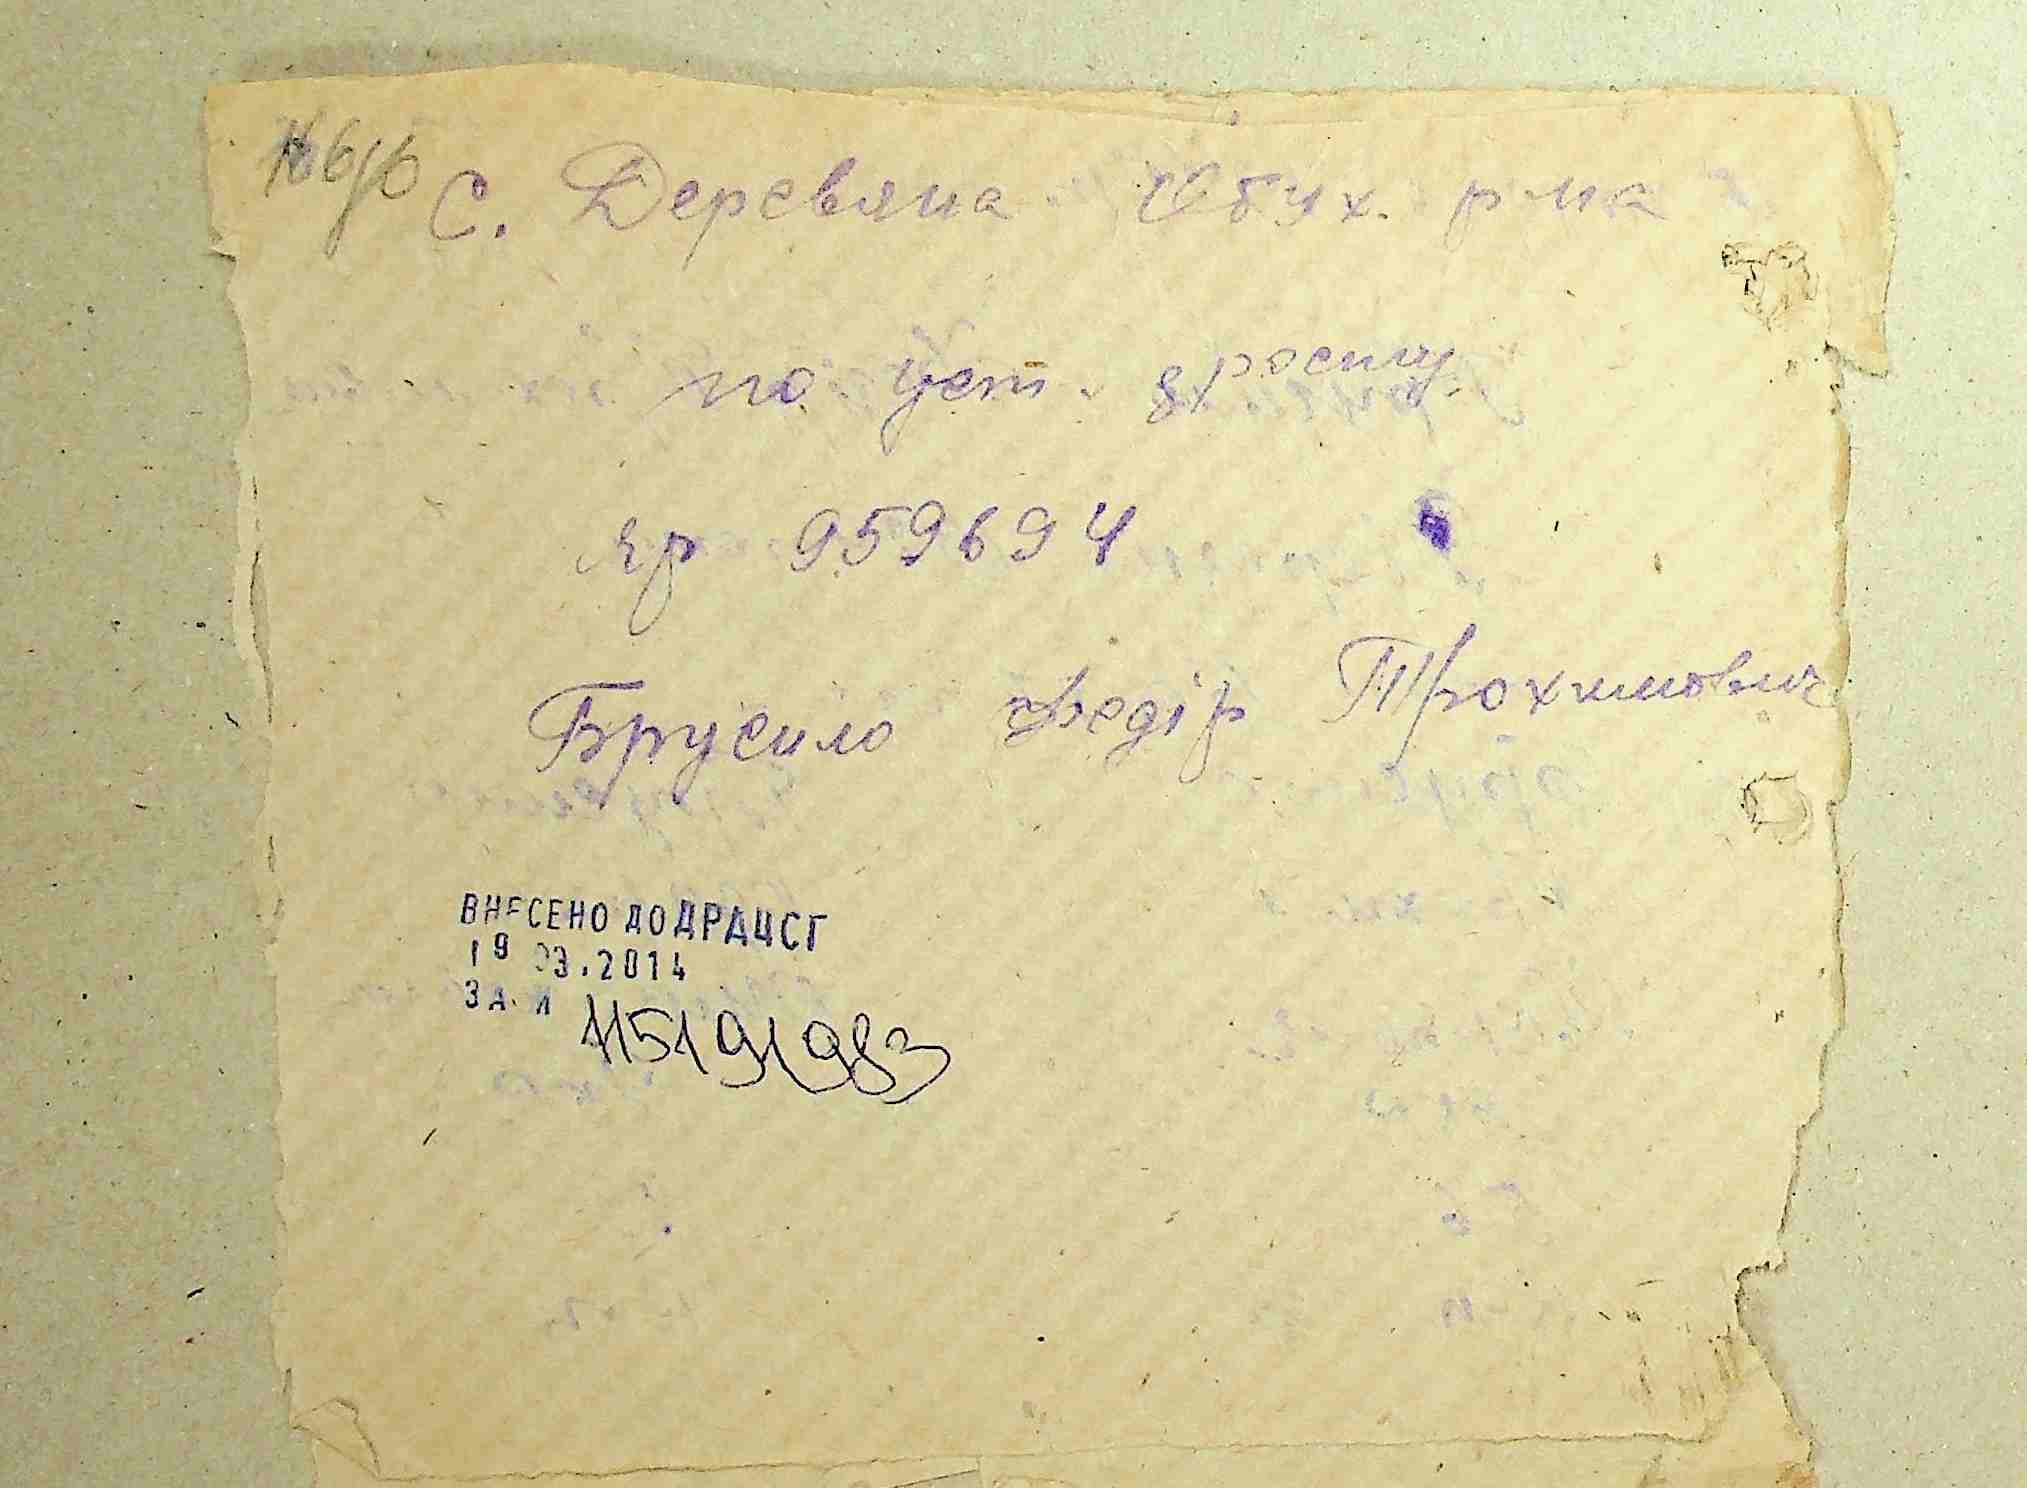 С. Деревяна Обух. р-на
по уст. запросу
яр 959694
Брусило Федір Трохимович
ВНЕСЕНО ДО ДРАЦСГ
19 03.2014
ЗА №
115191983